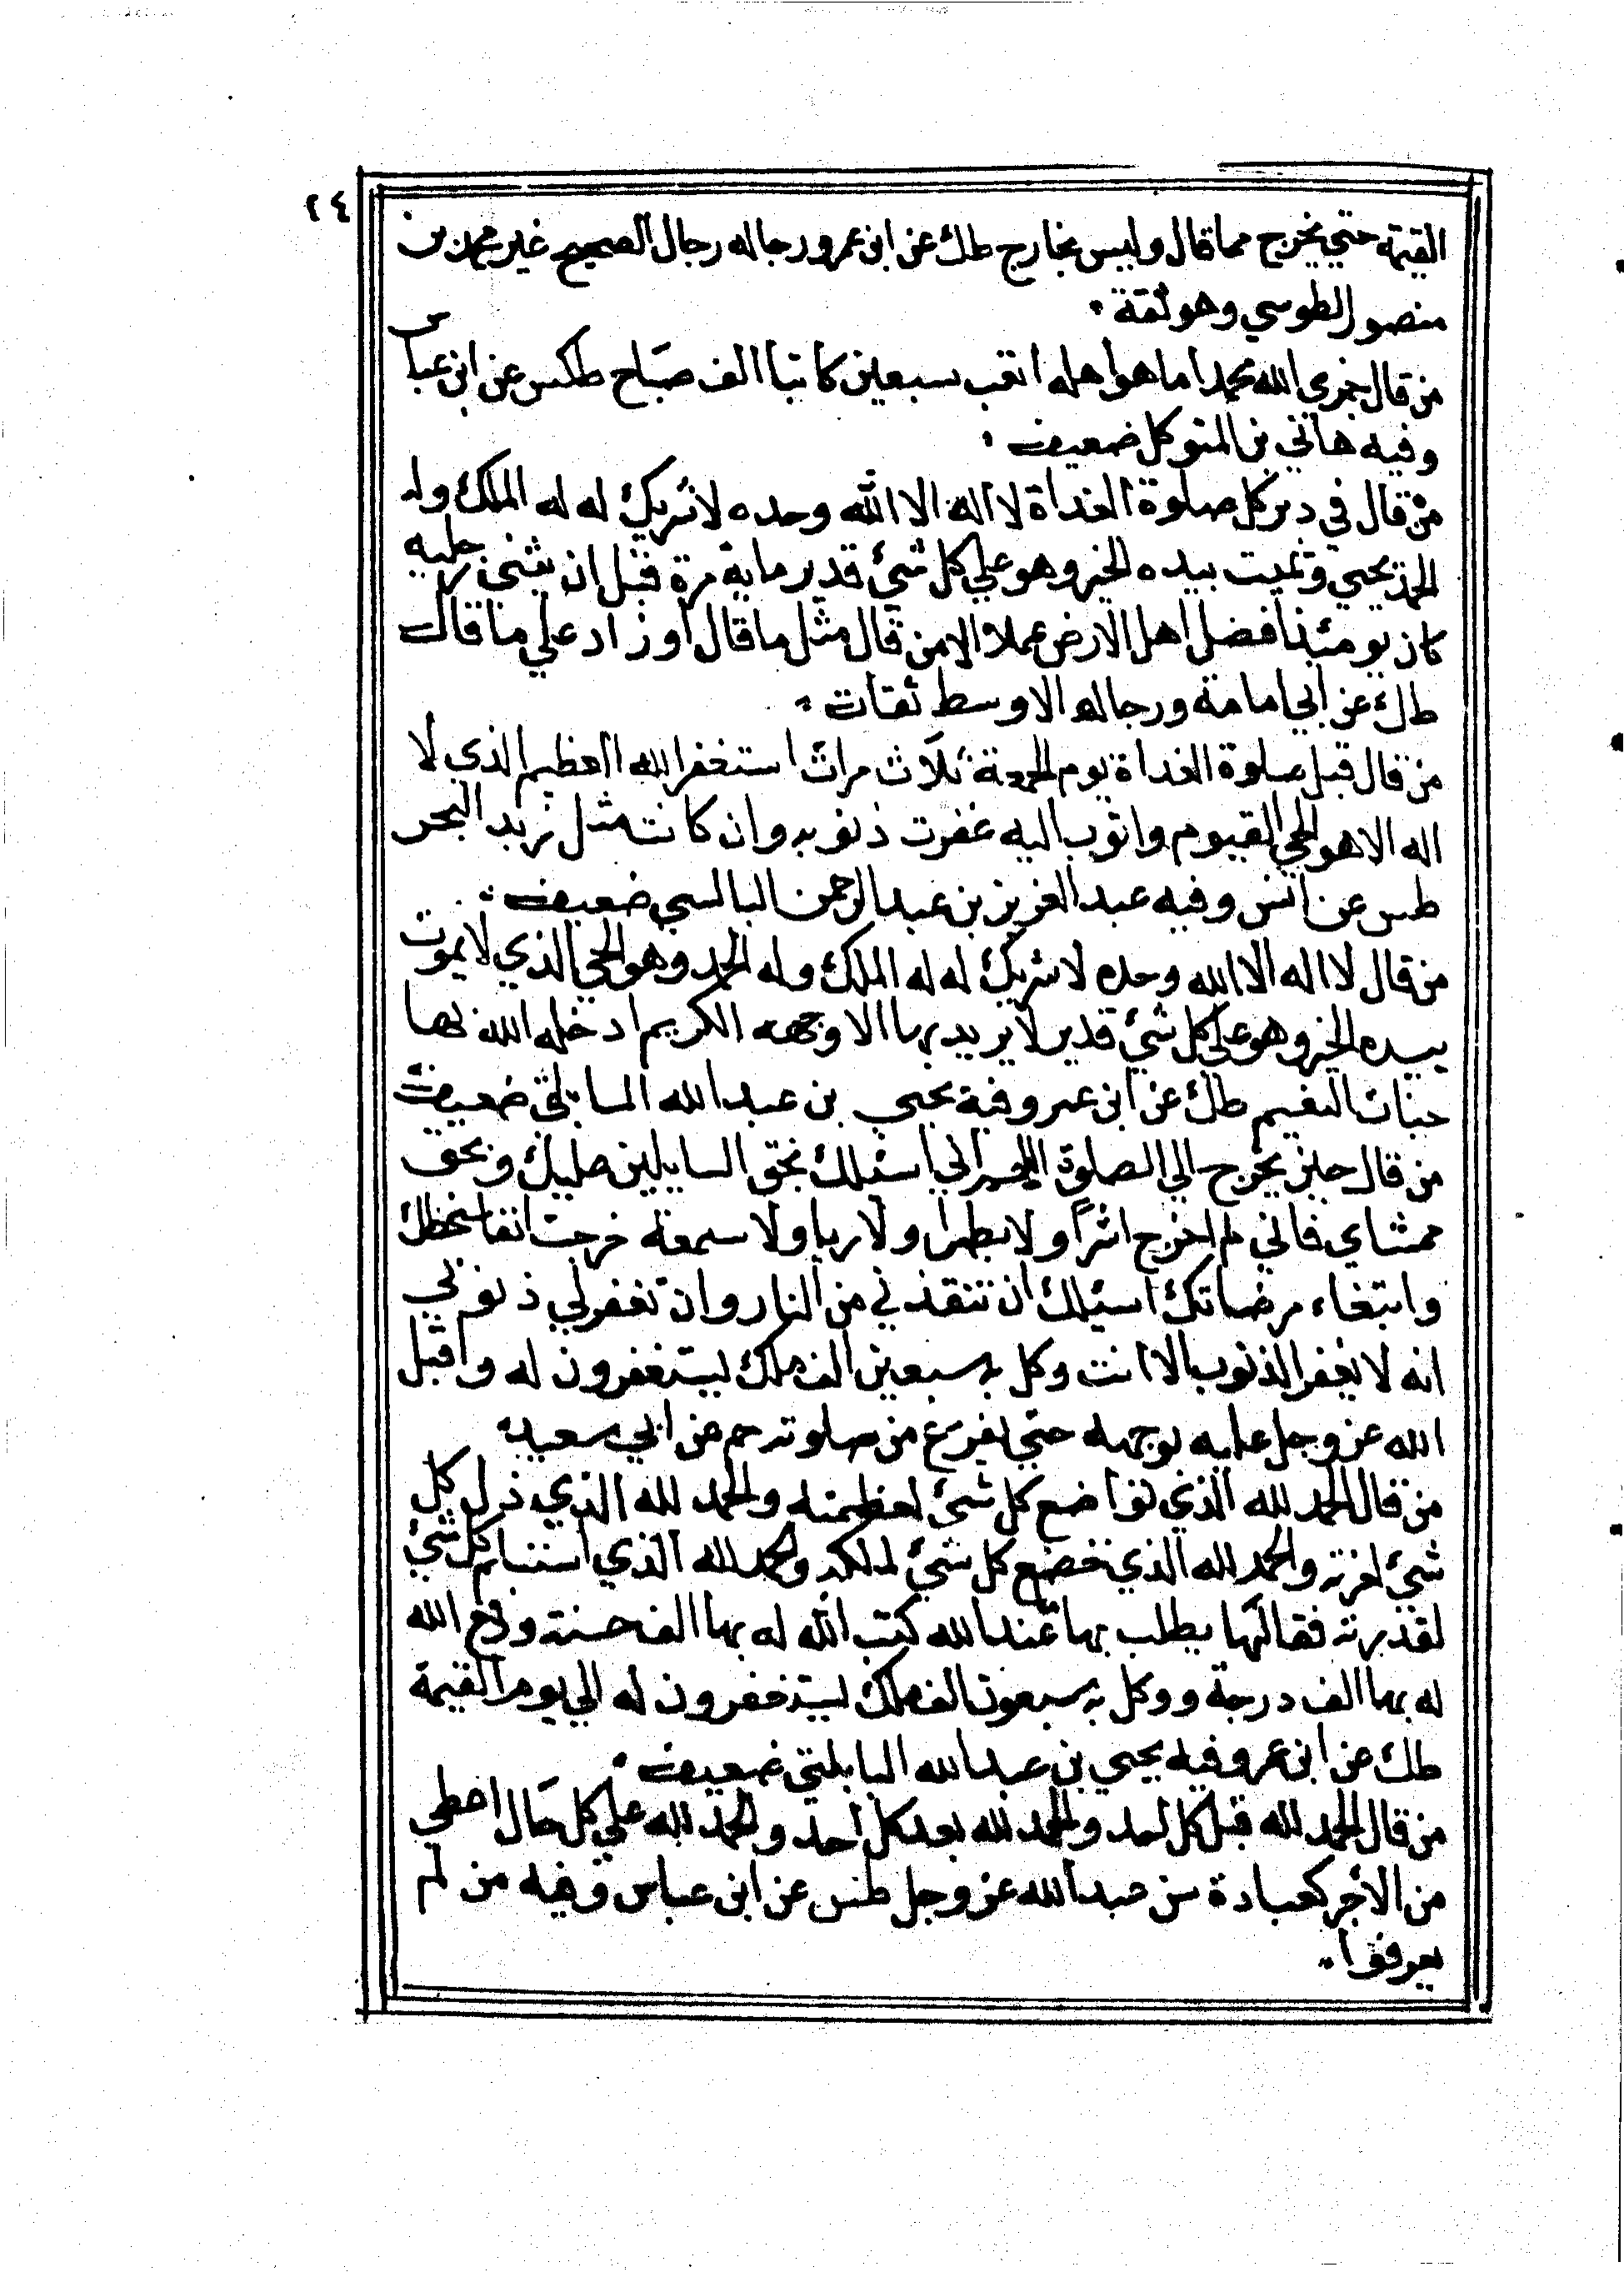 ٢٤
القيمة حتي يخرج مما قال وليس بخارج طك عن ابن عمرو رجاله رجال الصحيح غير محمد بن
منصور الطوسي وهو ثقة
من قال جزي الله محمدا ما هو اهله اتعب سبعين كاتبا الف صباح طكس عن ابن عباس
وفيه هاني بن المتوكل ضعيف
من قال في دبر كل صلوة الغداة لا اله الا الله وحده لا شريك له له الملك وله
الحمد يحيي ويميت بيده الخير وهو علي كل شئ قدير ماية مرة قبل ان يثني رجليه
كان يومئذ افضل اهل الارض عملا الا من قال مثل ما قال او زاد علي ما قال
طك عن ابي امامة ورجاله الاوسط ثقات
من قال قبل صلوة الغداة يوم الجمعة ثلاث مرات استغفر الله العظيم الذي لا
اله الا هو الحي القيوم واتوب اليه غفرت ذنوبه وان كانت مثل زبد البحر
طس عن انس وفيه عبد العزيز بن عبد الرحمن البالسي ضعيف
من قال لا اله الا الله وحده لا شريك له له الملك وله الحمد وهو الحي الذي لا يموت
بيده الخير وهو علي كل شئ قدير لا يريد بها الا وجهه الكريم ادخله الله بها
جنات النعيم طك عن ابن عمر وفيه يحيي بن عبد الله البابلتي ضعيف
من قال حين يخرج الي الصلوة اللهم اني اسئلك بحق السايلين عليك وبحق
ممشاي فاني لم اخرج اشرا ولا بطرا ولا ريا ولا سمعة خرجت اتقا سخطك
وابتغاء مرضاتك اسئلك ان تنقذني من النار وان تغفر لي ذنوبي
انه لا يغفر الذنوب الا انت وكل به سبعين الف ملك يستغفرون له واقبل
الله عز وجل عليه بوجهه حتي يفرغ من صلوته حم عن ابي سعيد
من قال الحمد لله الذي تواضع كل شئ لعظمته والحمد لله الذي ذل كل
شئ لعزته والحمد لله الذي خضع كل شئ لملكه والحمد لله الذي استسلم كل شئ
لقدرته فقالها يطلب بها عند الله كتب الله له بها الف حسنة ورفع الله
له بها الف درجة ووكل به سبعون الف ملك يستغفرون له الي يوم القيمة
طك عن ابن عمر وفيه يحيي بن عبد الله البابلتي ضعيف
من قال الحمد لله قبل كل احد والحمد لله بعد كل احد والحمد لله علي كل حال اعطي
من الأجر كعبادة من عبد الله عز وجل طس عن ابن عباس وفيه من لم
يعرفوا